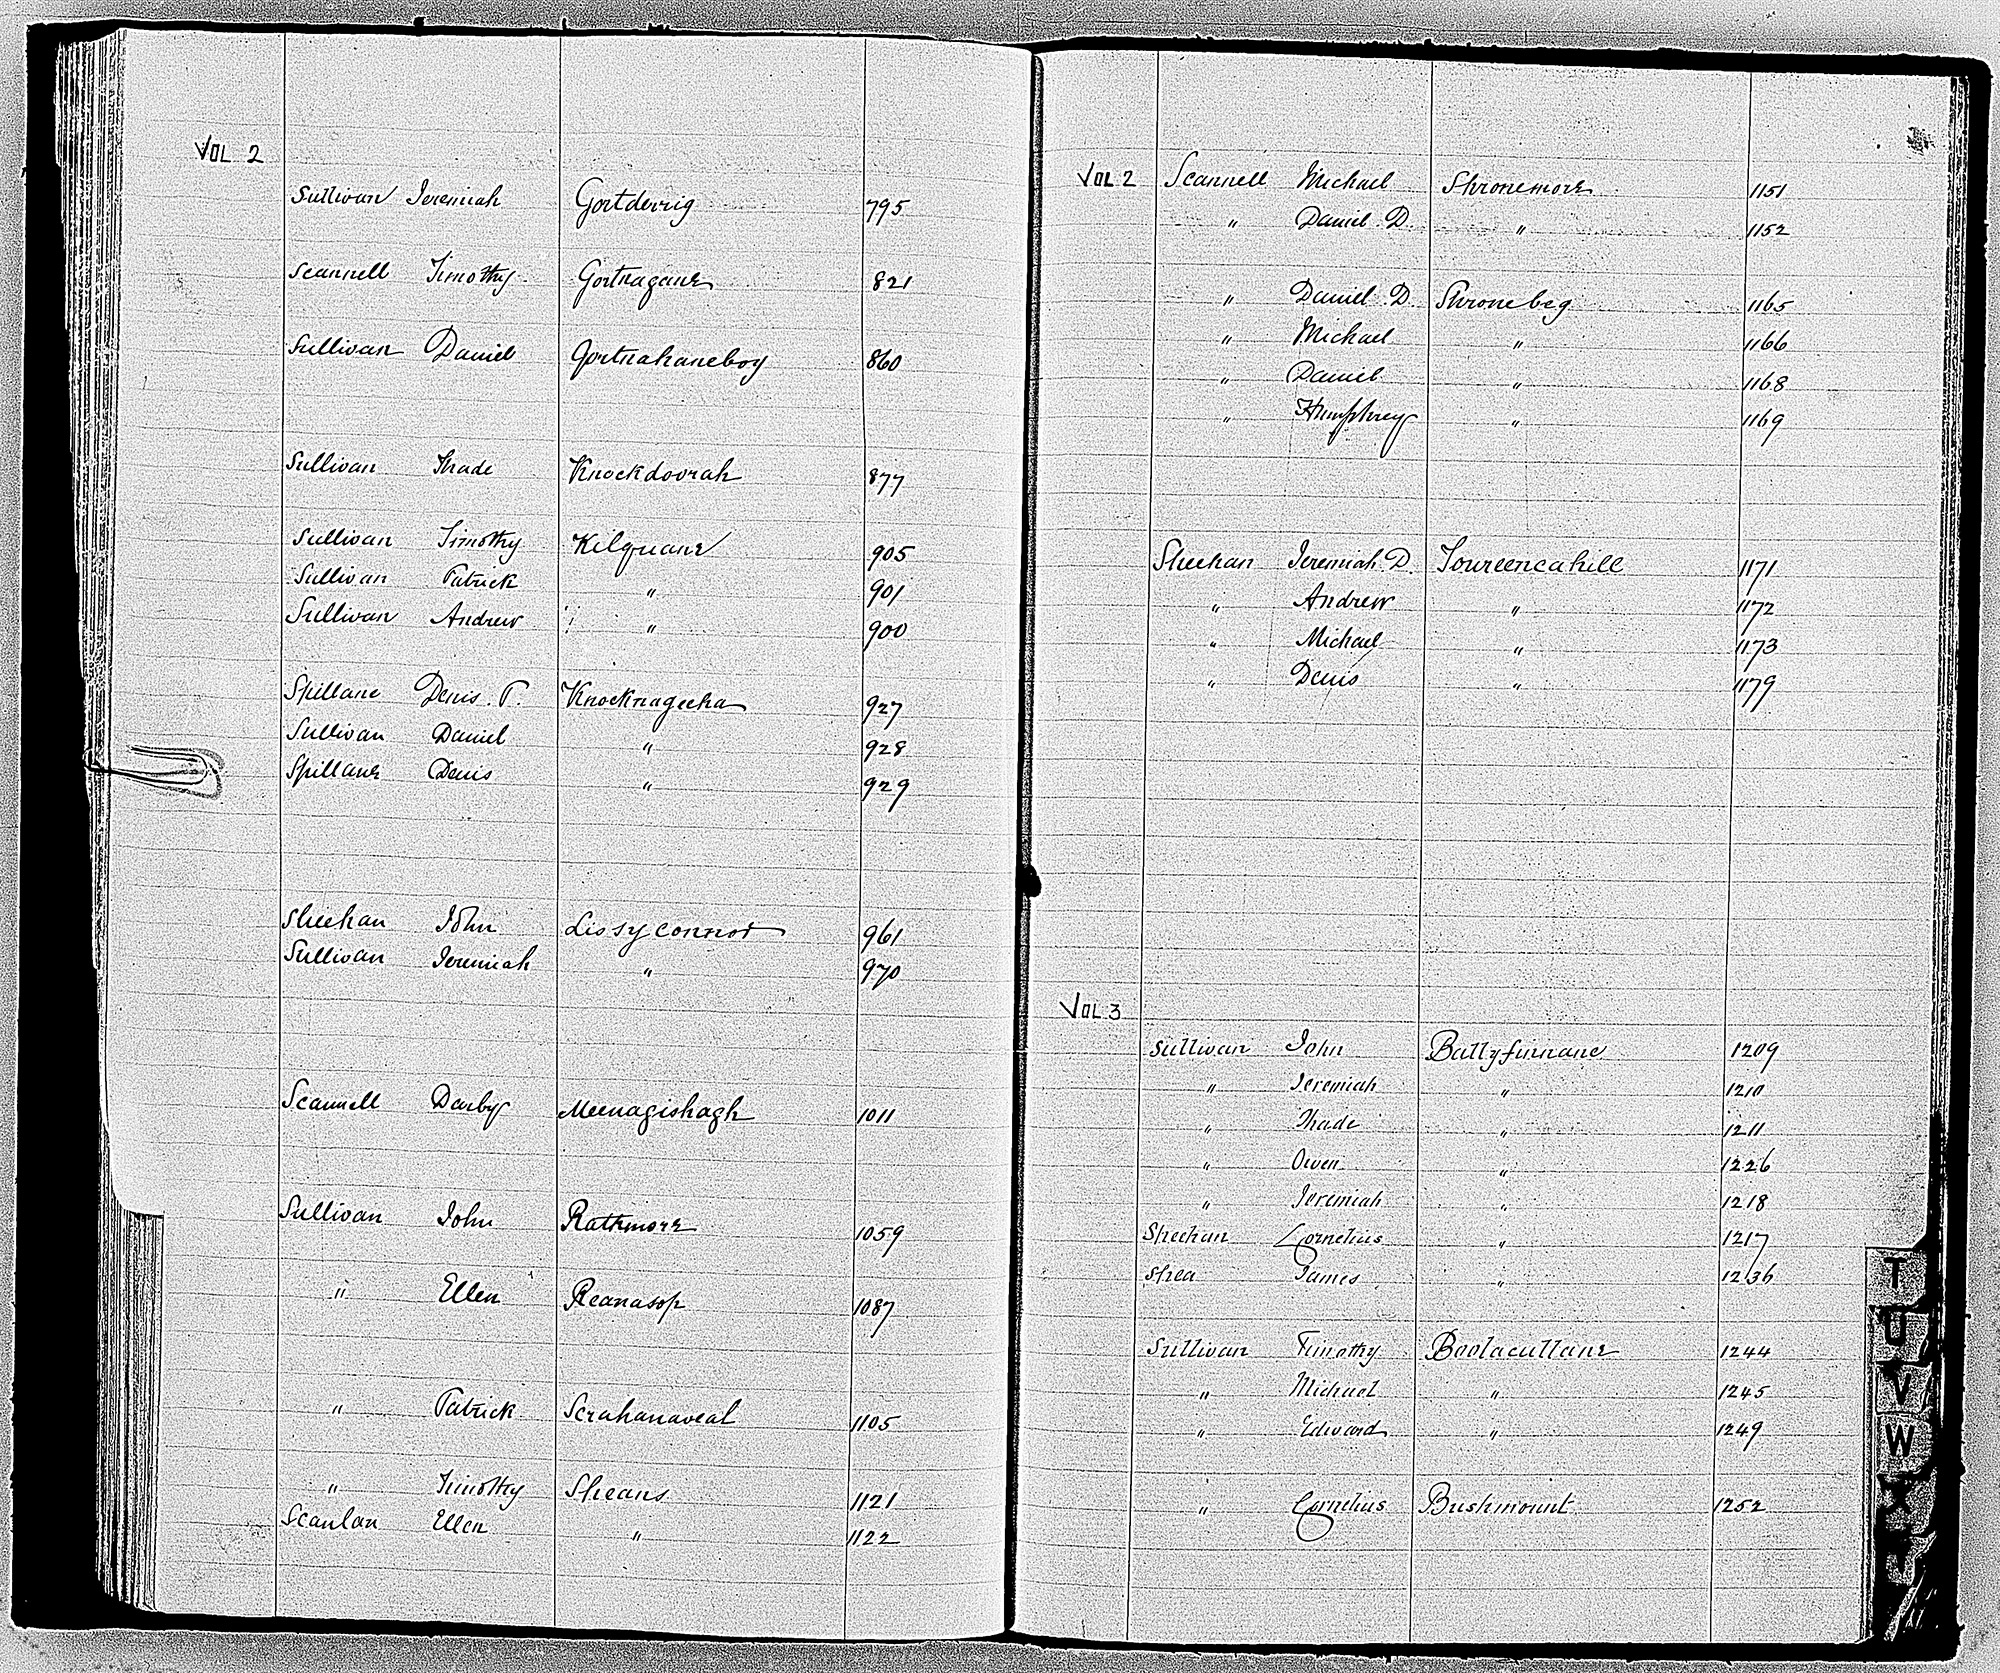 VOL 2
Sullivan Jeremiah Gortderrig 795
Scannell Timothy Gortnagane 821
Sullivan Daniel Gortnahaneboy 860
Sullivan Thade Knockdoorah 877
Sullivan Timothy Kilquane 905
Sullivan Patrick " 901
Sullivan Andrew " 900
Spillane Denis. P. Knocknageeha 927
Sullivan Daniel " 928
Spillane Denis " 929
Sheehan John Lissyconnor 961
Sullivan Jeremiah " 970
Scannell Darby Meenagishagh 1011
Sullivan John Rathmore 1059
" Ellen Reanasop 1087
" Patrick Scrahanaveal 1105
" Timothy Sheans 1121
Scanlan Ellen " 1122
VOL 2 Scannell Michael Shronemore 1151
" Daniel. D. " 1152
" Daniel. D. Shronebeg 1165
" Michael " 1166
" Daniel " 1168
" Humphrey " 1169
Sheehan Jeremiah. D. Toureencahill 1171
" Andrew " 1172
" Michael " 1173
" Denis " 1179
VOL 3
Sullivan John Ballyfinnane 1209
" Jeremiah " 1210
" Thade " 1211
" Owen " 1226
" Jeremiah " 1218
Sheehan Cornelius " 1217
Shea James " 1236
Sullivan Timothy Boolacullane 1244
" Michael " 1245
" Edward " 1249
" Cornelius Bushmount 1252
T
U
V
W
X
Y